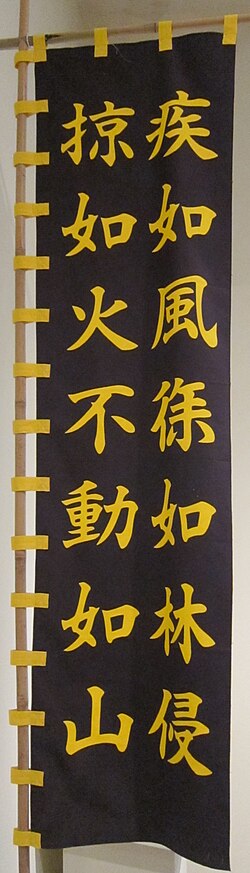 疾如風徐如林侵
掠如火不動如山